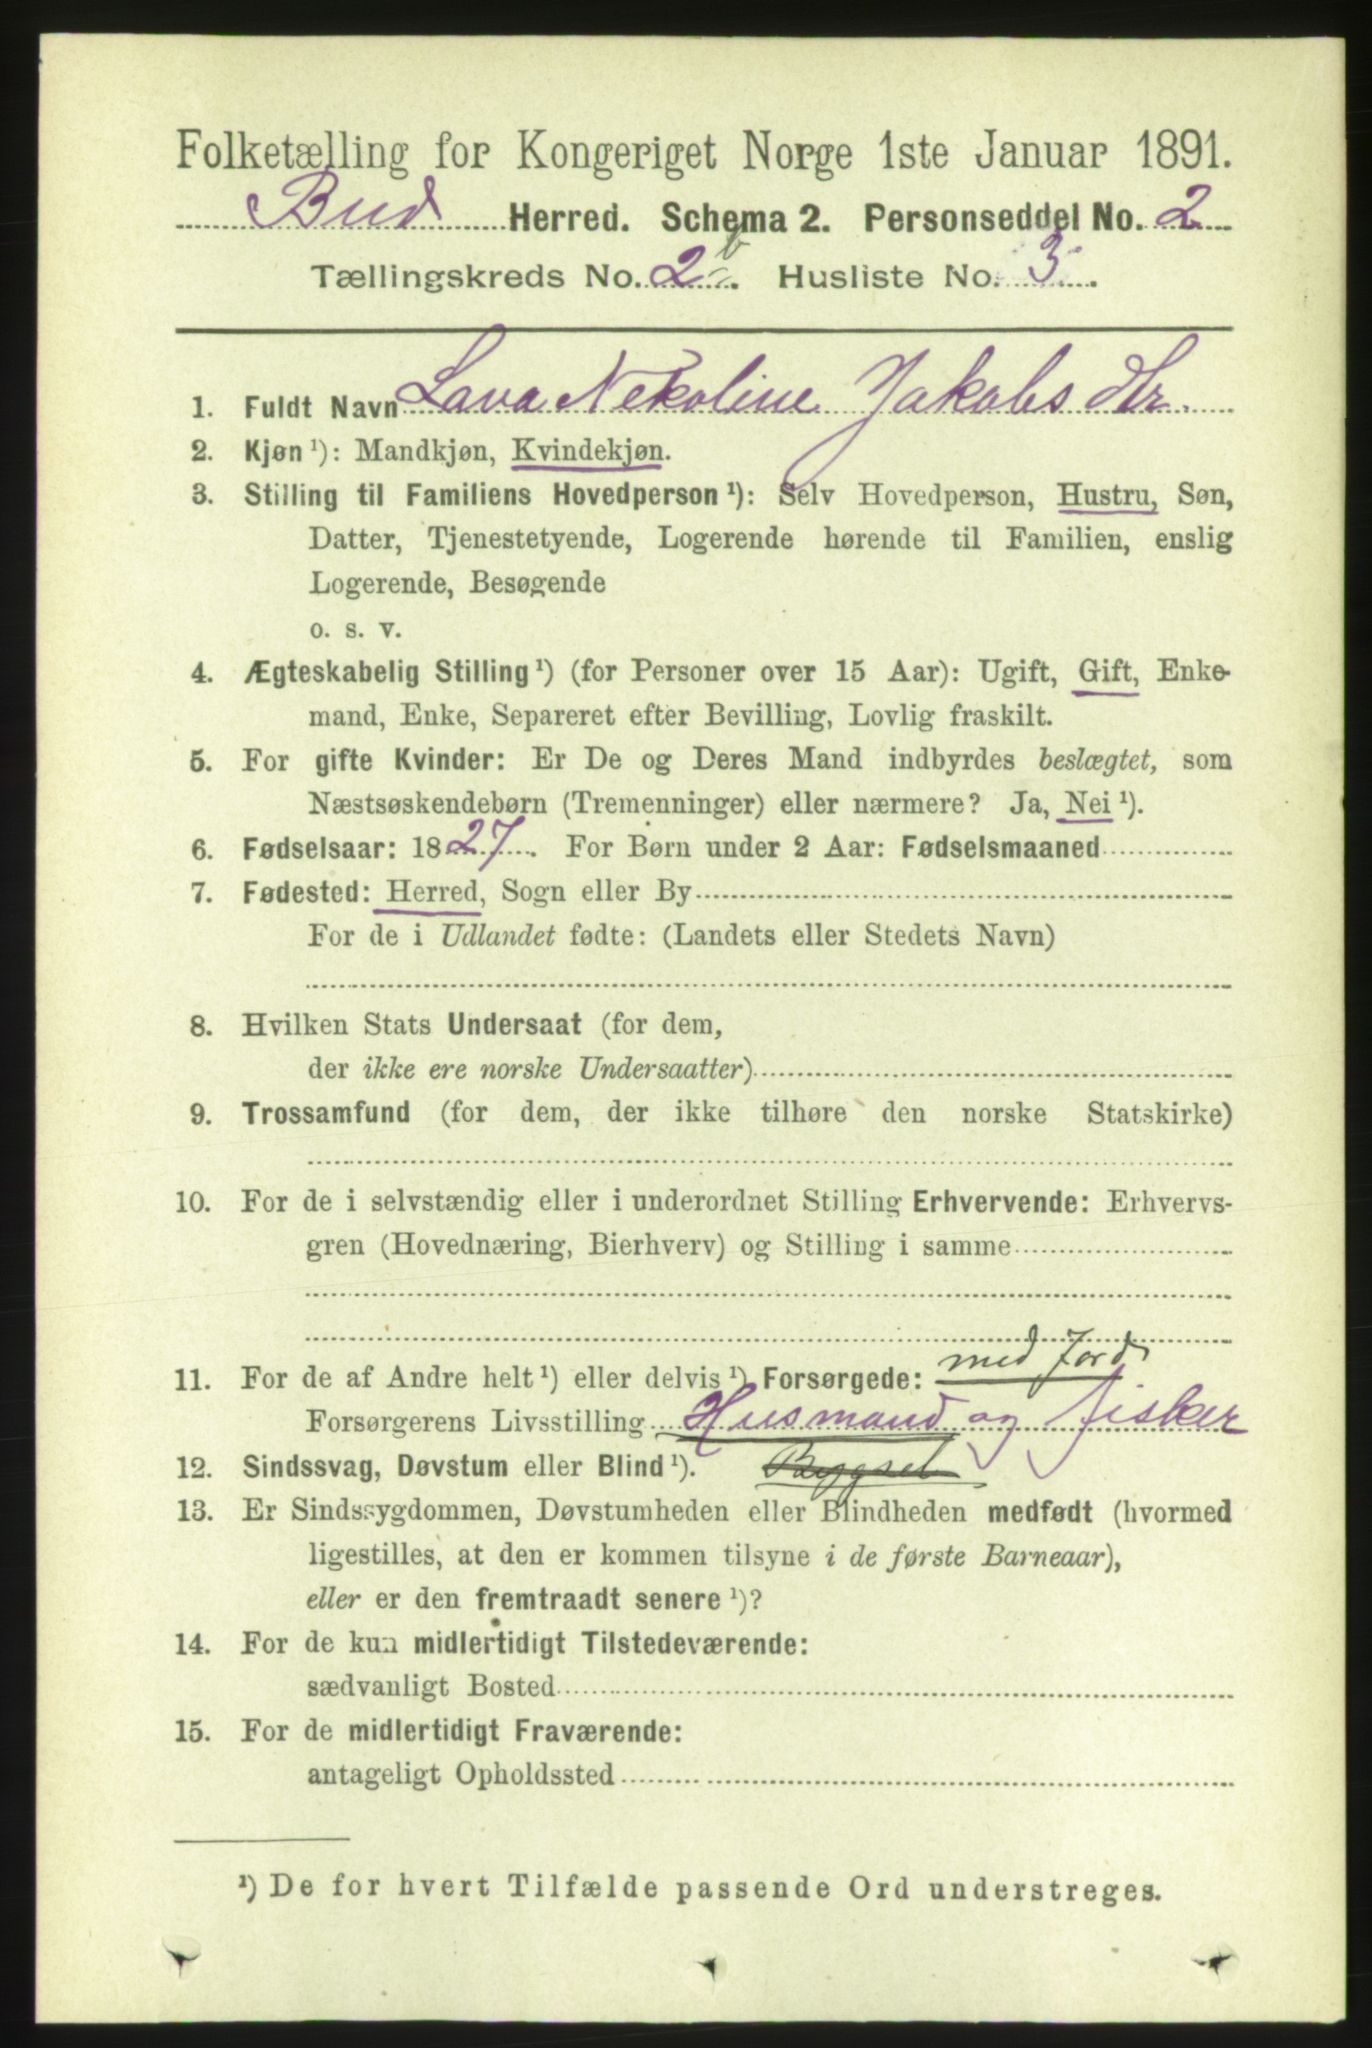 Folketælling for Kongeriget Norge 1ste Januar 1891.
Bud Herred. Schema 2. Personseddel No. 2
Tællingskreds No. 2b. Husliste No. 3.
1. Fuldt Navn Lava Nekoline Jakobsdtr.
2. Kjøn ¹): Mandkjøn, Kvindekjøn.
3. Stilling til Familiens Hovedperson ¹): Selv Hovedperson, Hustru, Søn,
Datter, Tjenestetyende, Logerende hørende til Familien, enslig
Logerende, Besøgende
o. s. v.
4. Ægteskabelig Stilling ¹) (for Personer over 15 Aar): Ugift, Gift, Enke-
mand, Enke, Separeret efter Bevilling, Lovlig fraskilt.
5. For gifte Kvinder: Er De og Deres Mand indbyrdes beslægtet, som
Næstsøskendebørn (Tremenninger) eller nærmere? Ja, Nei ¹).
6. Fødselsaar: 1827. For Børn under 2 Aar: Fødselsmaaned
7. Fødested: Herred, Sogn eller By
For de i Udlandet fødte: (Landets eller Stedets Navn)
8. Hvilken Stats Undersaat (for dem,
der ikke ere norske Undersaatter)
9. Trossamfund (for dem, der ikke tilhøre den norske Statskirke)
10. For de i selvstændig eller i underordnet Stilling Erhvervende: Erhvervs-
gren (Hovednæring, Bierhverv) og Stilling i samme
11. For de af Andre helt ¹) eller delvis ¹) Forsørgede: med Jord
Forsørgerens Livsstilling Husmand og Fisker
12. Sindssvag, Døvstum eller Blind ¹). Bygsel
13. Er Sindssygdommen, Døvstumheden eller Blindheden medfødt (hvormed
ligestilles, at den er kommen tilsyne i de første Barneaar),
eller er den fremtraadt senere ¹)?
14. For de kun midlertidigt Tilstedeværende:
sædvanligt Bosted
15. For de midlertidigt Fraværende:
antageligt Opholdssted
¹) De for hvert Tilfælde passende Ord understreges.